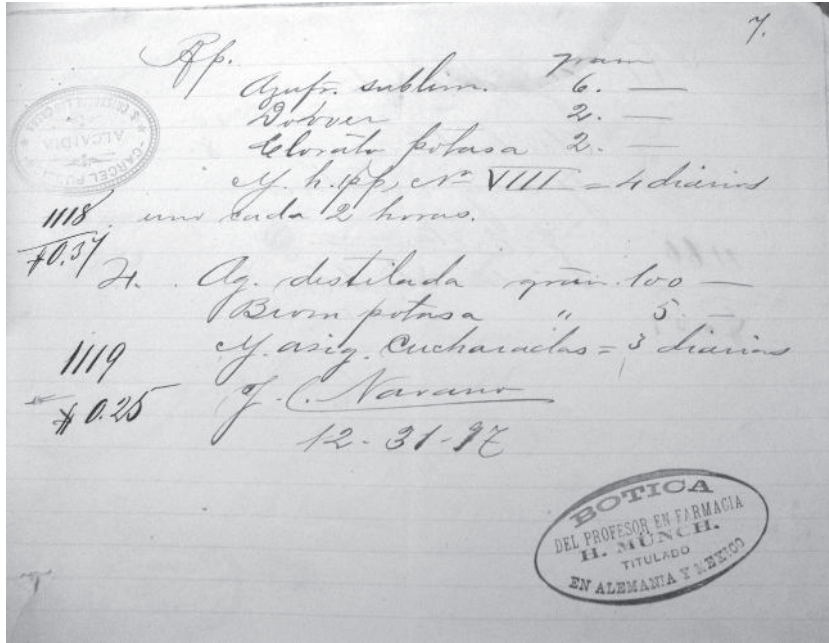 7.
Rp. gram
Azufr. sublim. 6. —
Dower 2. —
Clorato potasa 2. —
M. h. pp. Nº VIII = 4 diarios
1118 uno cada 2 horas.
$0.37
2. Ag. destilada gram. 100 —
Brom potasa " 5 —
1119 M. asig. Cucharadas = 3 diarias
$0.25 J. C. Navarro
12-31-97
ALCALDIA
BOTICA
DEL PROFESOR EN FARMACIA
H. MÜNCH.
TITULADO
EN ALEMANIA Y MEXICO